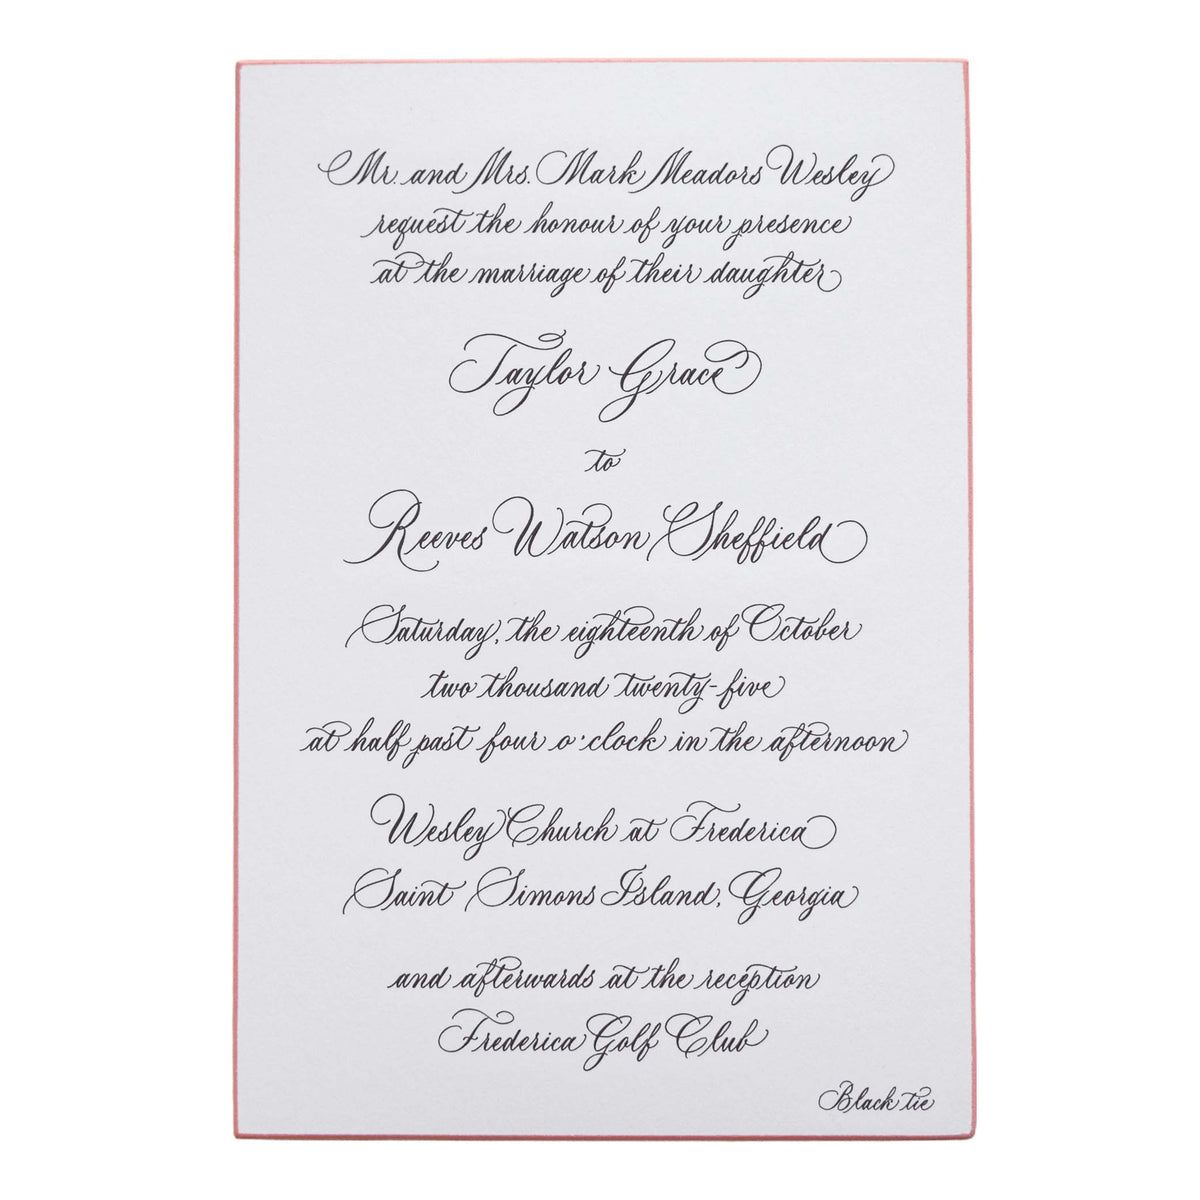 Mr. and Mrs. Mark Meadors Wesley
request the honour of your presence
at the marriage of their daughter
Taylor Grace
to
Reeves Watson Sheffield
Saturday, the eighteenth of October
two thousand twenty-five
at half past four o'clock in the afternoon
Wesley Church at Frederica
Saint Simons Island, Georgia
and afterwards at the reception
Frederica Golf Club
Black tie